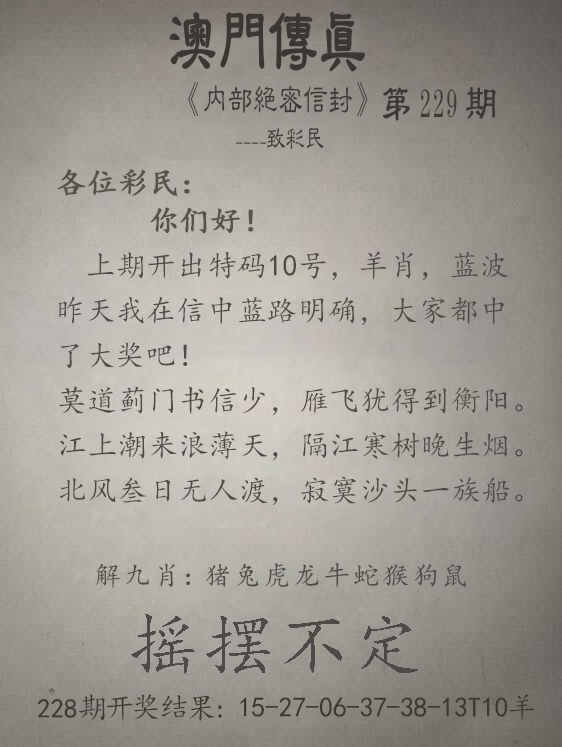 澳門傳眞
《内部絕密信封》第229期
----致彩民
各位彩民：
你们好！
上期开出特码10号，羊肖，蓝波
昨天我在信中蓝路明确，大家都中
了大奖吧！
莫道蓟门书信少，雁飞犹得到衡阳。
江上潮来浪薄天，隔江寒树晚生烟。
北风叁日无人渡，寂寞沙头一族船。
解九肖：猪兔虎龙牛蛇猴狗鼠
摇摆不定
228期开奖结果：15-27-06-37-38-13T10羊